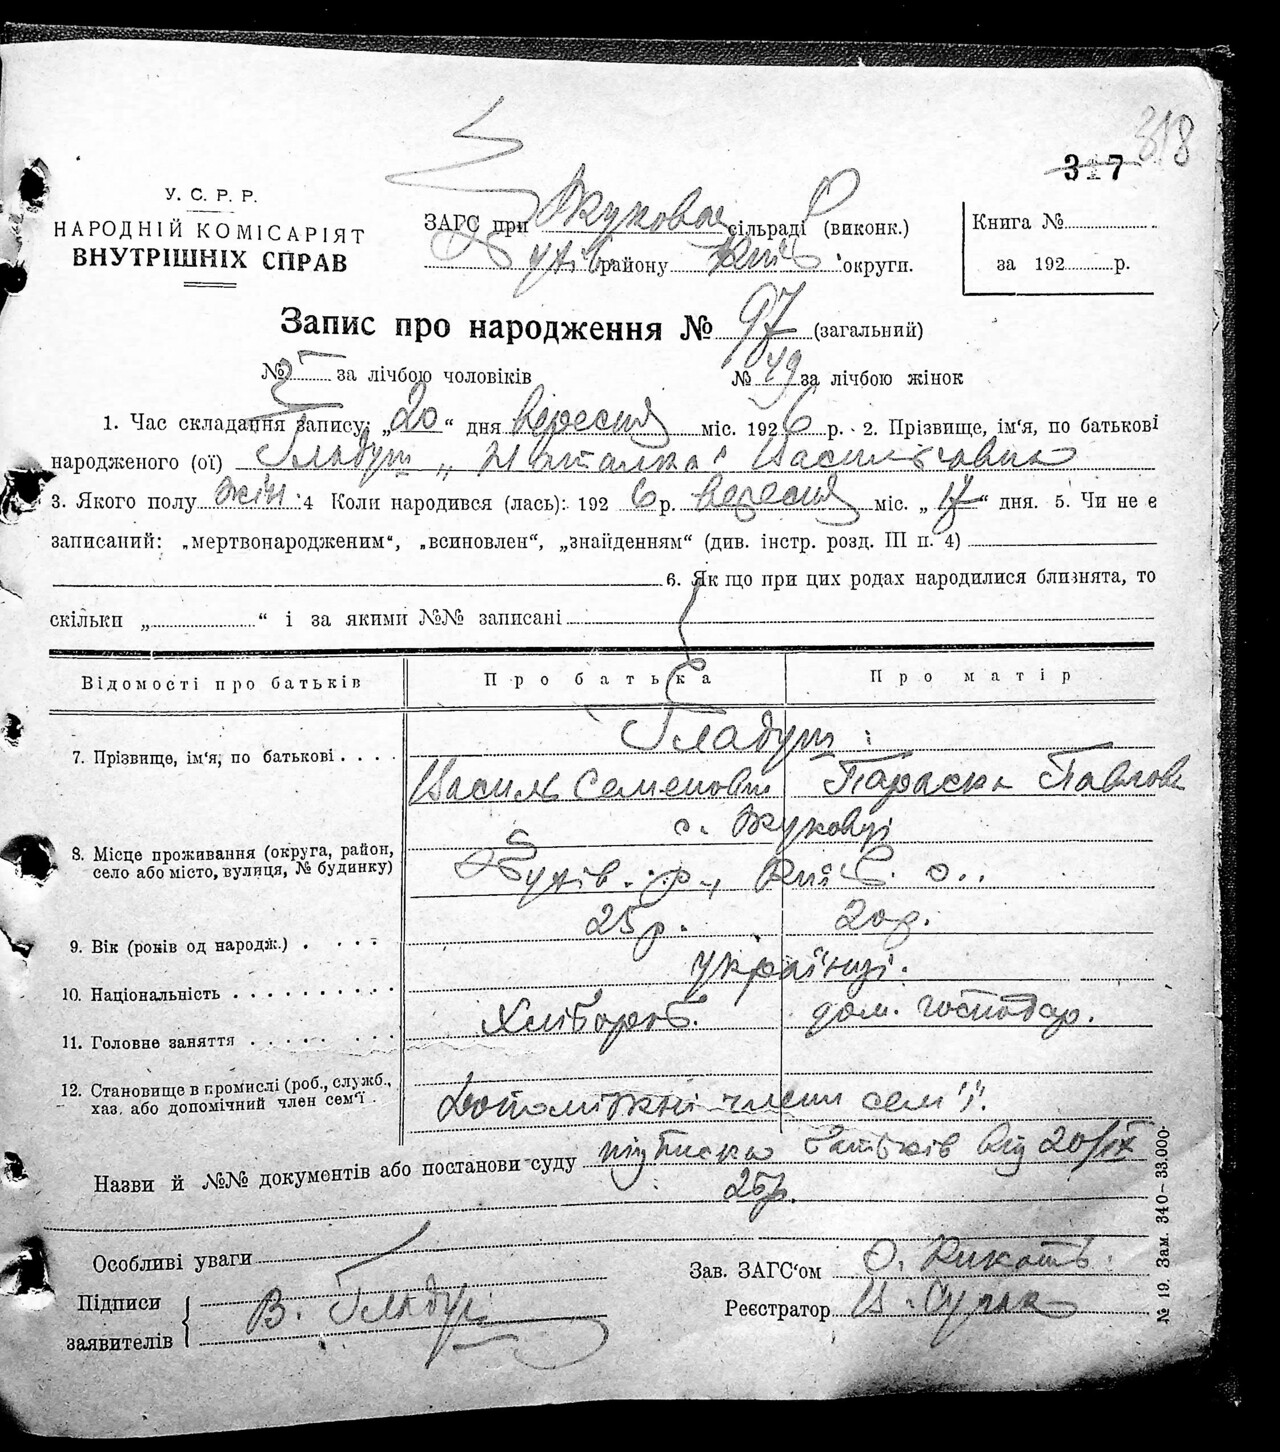 318
317
У. С. Р. Р.
НАРОДНІЙ КОМІСАРІЯТ
ВНУТРІШНІХ СПРАВ
ЗАГС при Жуковец сільраді (виконк.)
району Київ округи.
Книга №
за 192 р.
Запис про народження № 97 (загальний)
№ за лічбою чоловіків
№ 49 за лічбою жінок
1. Час складання запису: „20“ дня вересня міс. 1926 р. 2. Прізвище, ім'я, по батькові
народженого (ої) Гладуш Наталка Василівна
3. Якого полу жін. 4 Коли народився (лась): 192 6 р. вересня міс. „17“ дня. 5. Чи не є
записаний: „мертвонародженим“, „всиновлен“, „знайденням“ (див. інстр. розд. III п. 4)
6. Як що при цих родах народилися близнята, то
скільки „ “ і за якими №№ записані
Відомості про батьків
Про батька
Про матір
7. Прізвище, ім'я, по батькові
Гладуш
Василь Семенович
Параска Павлов
8. Місце проживання (округа, район,
село або місто, вулиця, № будинку)
с. Жуковці
р., Київ. о.
9. Вік (років од народж.)
25 р.
20 р.
10. Національність
українці.
11. Головне заняття
Хлібороб.
дом. господар.
12. Становище в промислі (роб., служб.,
хаз. або допомічний член сем'ї
Допоміжні члени сем'ї.
Назви й №№ документів або постанови суду підписка батьків від 20/IX
26р.
Особливі уваги
Підписи
заявителів
В. Гладуш
Зав. ЗАГС'ом
Реєстратор
№ 19. Зам. 340–33.000.